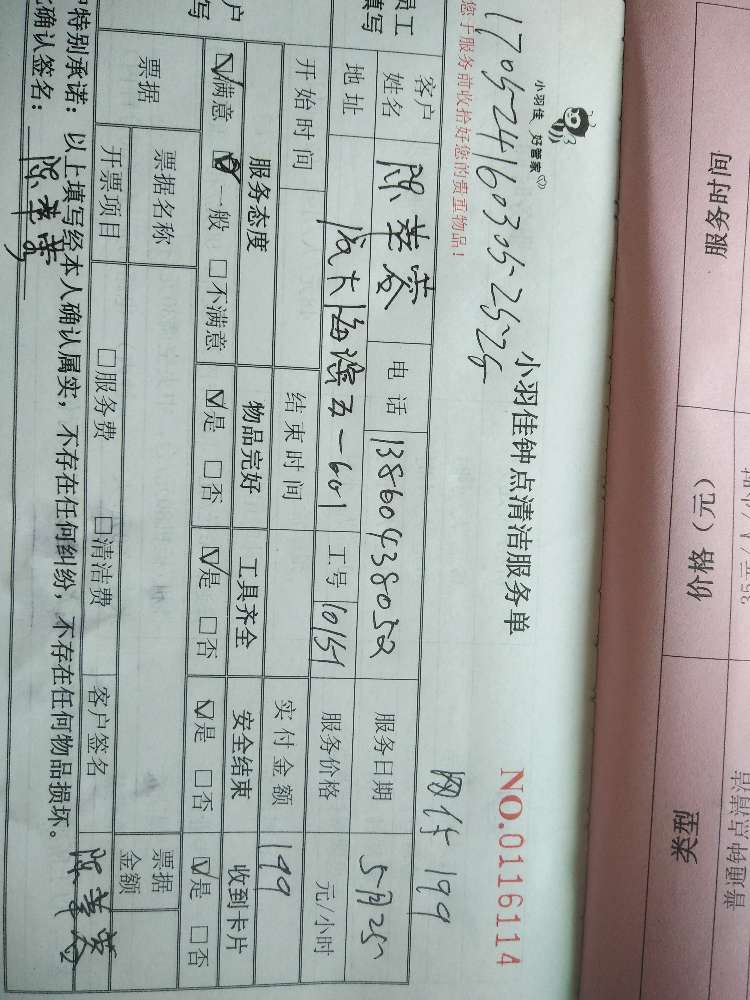 小羽佳 好管家
小羽佳钟点清洁服务单
NO.0116114
1705241603052525
您于服务前收拾好您的贵重物品！
网付 199
员工
填写
客户
姓名
电话
13860438052
服务日期
5月25
地址
海滨五一601
工号
10151
服务价格
元/小时
开始时间
结束时间
实付金额
199
户
写
服务态度
物品完好
工具齐全
安全结束
收到卡片
☑满意 ☑一般 □不满意
☑是 □否
☑是 □否
☑是 □否
☑是 □否
票据
票据名称
票据
金额
开票项目
□服务费 □清洁费
客户签名
特别承诺：以上填写经本人确认属实，不存在任何纠纷，不存在任何物品损坏。
确认签名：
服务时间
价格（元）
类型
普通钟点清洁